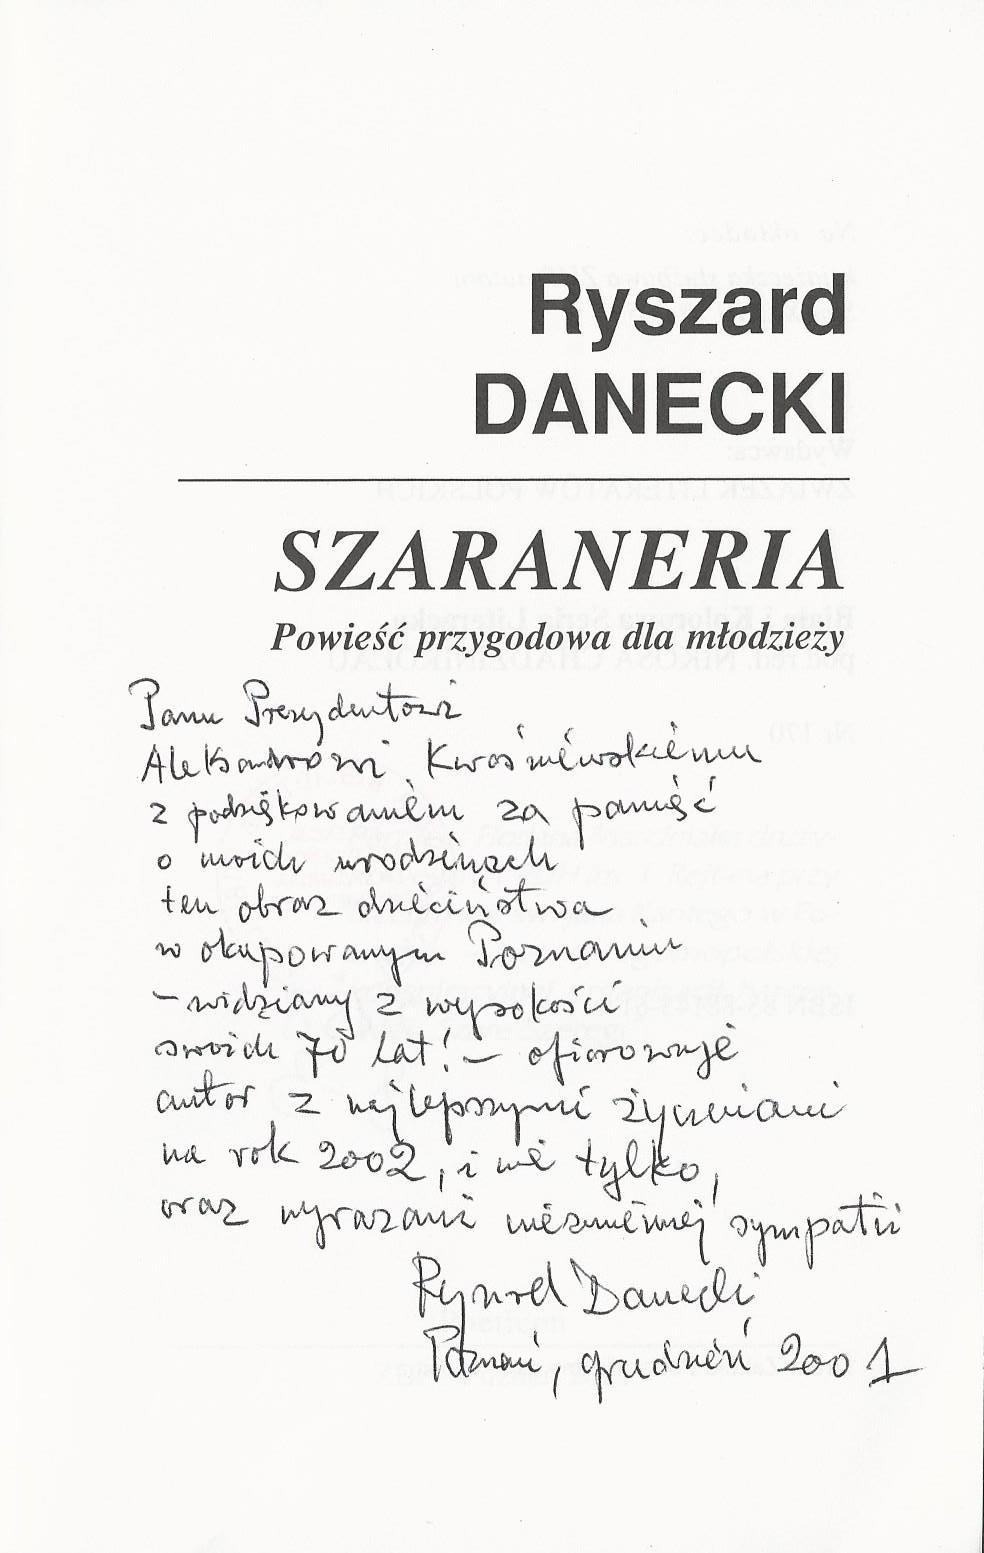 Ryszard
DANECKI
SZARANERIA
Powieść przygodowa dla młodzieży
Panu Prezydentowi
Aleksandrowi Kwaśniewskiemu
z podziękowaniem za pamięć
o moich urodzinach
ten obraz dzieciństwa
w okupowanym Poznaniu
– widziany z wysokości
swoich 70 lat! – ofiarowuje
autor z najlepszymi życzeniami
na rok 2002, i nie tylko,
oraz wyrazami niezmiennej sympatii
Ryszard Danecki
Poznań, grudzień 2001